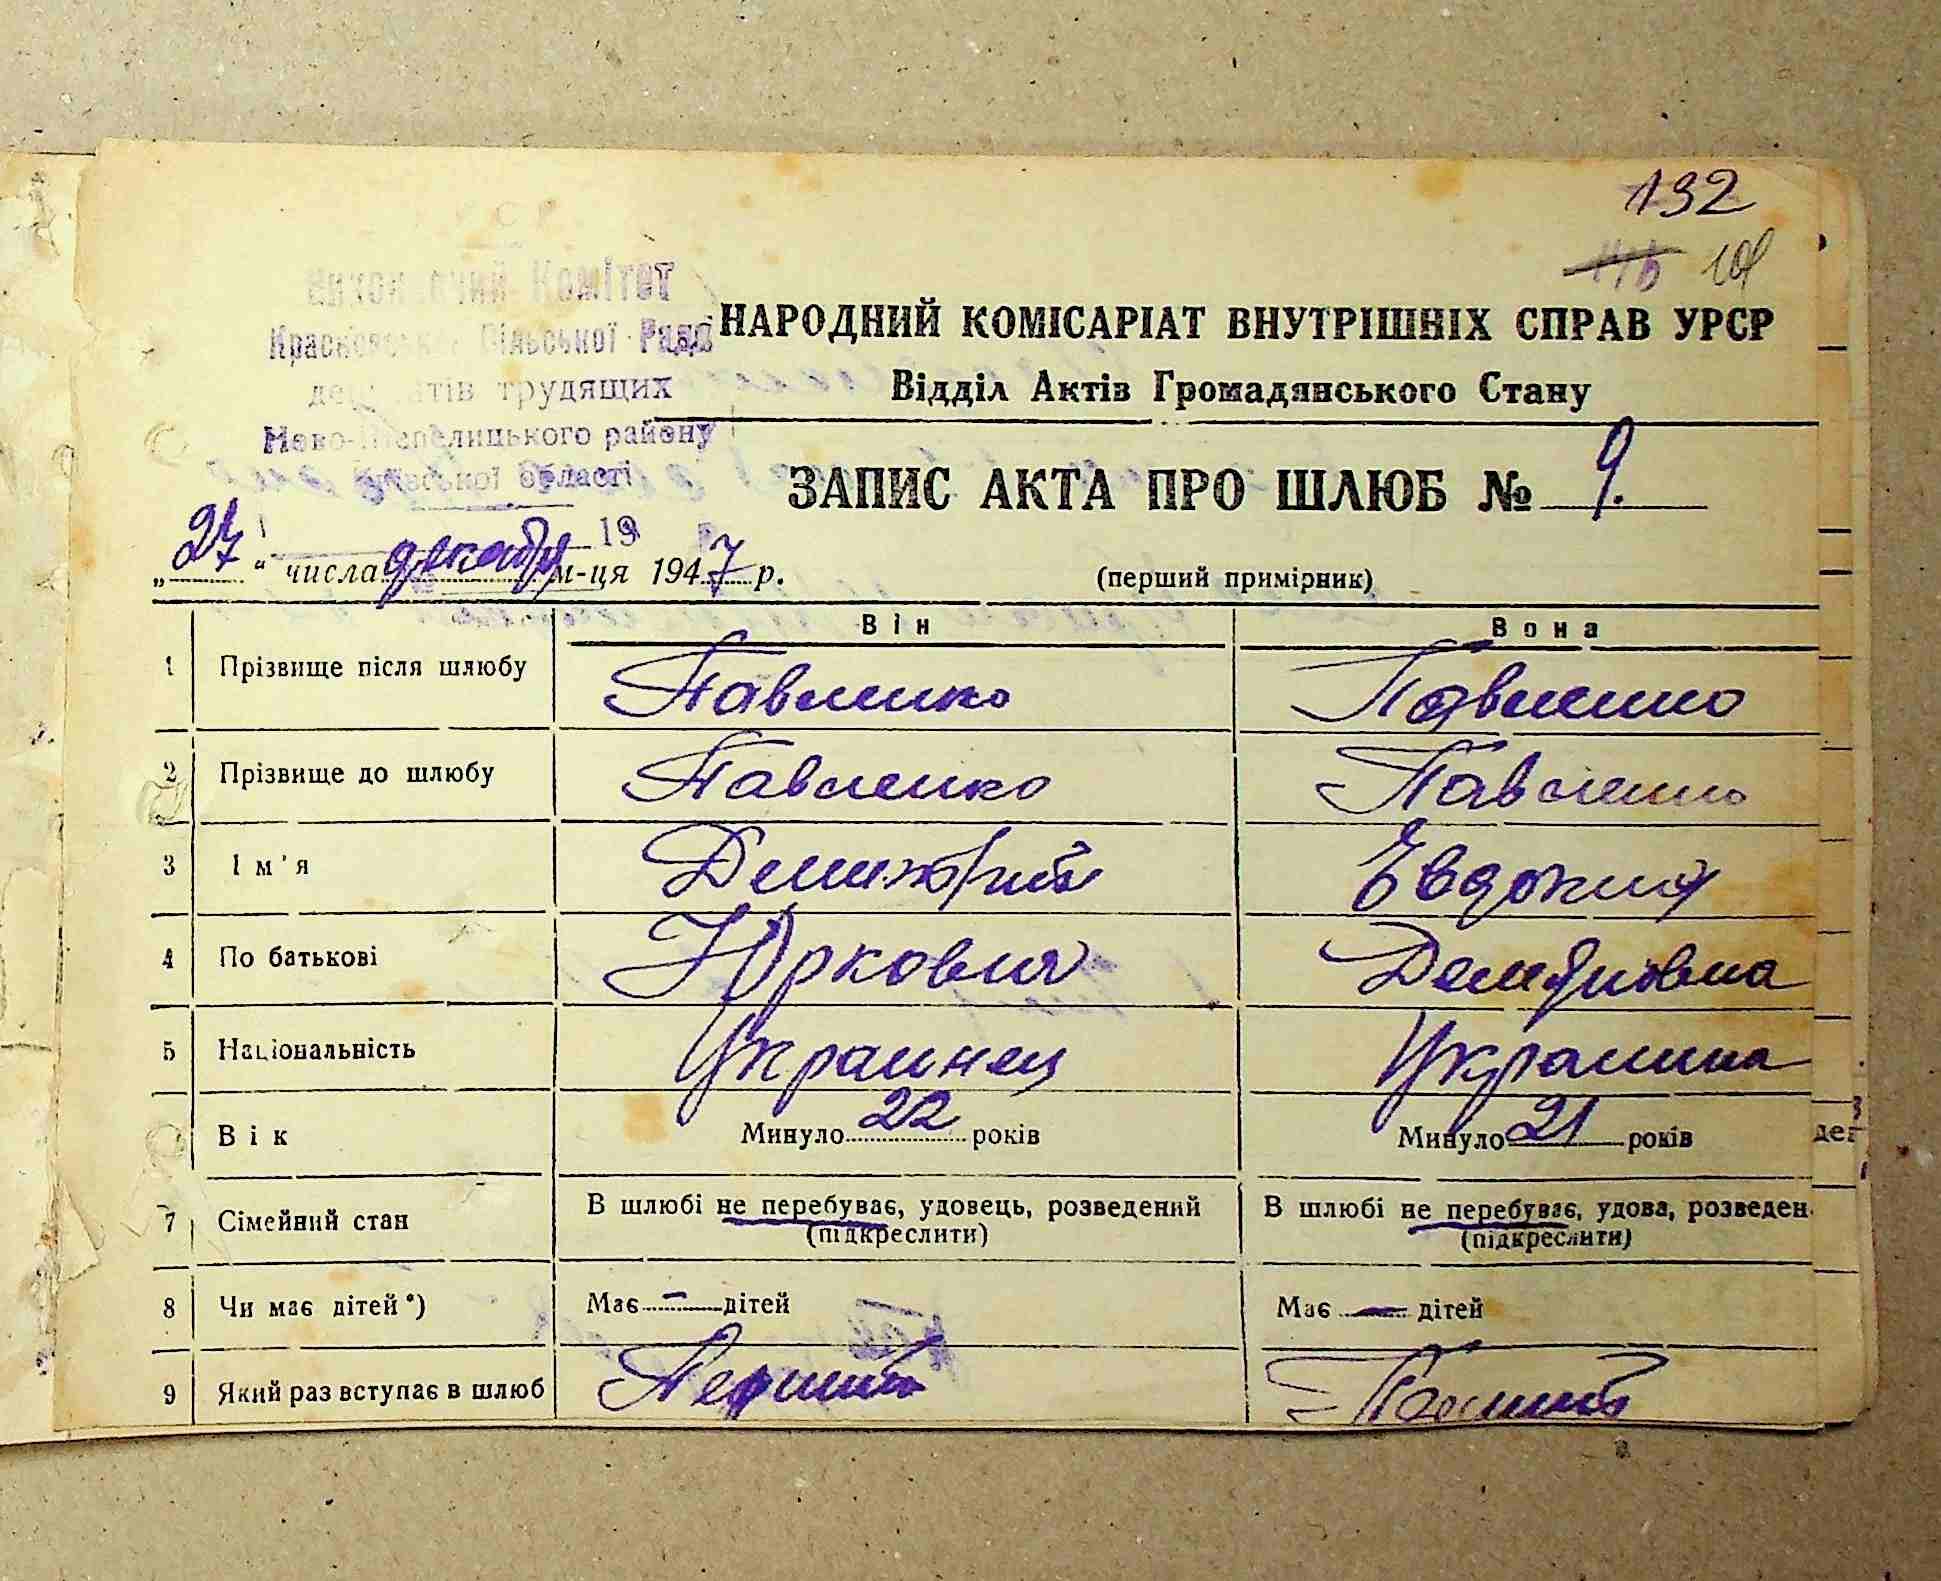 132
101
Комітет
Сільської Ради
НАРОДНИЙ КОМІСАРІАТ ВНУТРІШНІХ СПРАВ УРСР
депутатів трудящих
Відділ Актів Громадянського Стану
Ново-Шепелицького району
Київської області
ЗАПИС АКТА ПРО ШЛЮБ № 9.
19
„27“ числа декабр м-ця 1947 р.
(перший примірник)
Він Вона
1 Прізвище після шлюбу Павленко Павленко
2 Прізвище до шлюбу Павленко Павленко
3 Ім'я Дмитрий Евдокия
4 По батькові Юркович Демяновна
5 Національність Украинец Украинка
Вік Минуло 22 років Минуло 21 років
7 Сімейний стан В шлюбі не перебуває, удовець, розведений В шлюбі не перебуває, удова, розведен
(підкреслити) (підкреслити)
8 Чи має дітей*) Має – дітей Має — дітей
9 Який раз вступає в шлюб Першый Первый